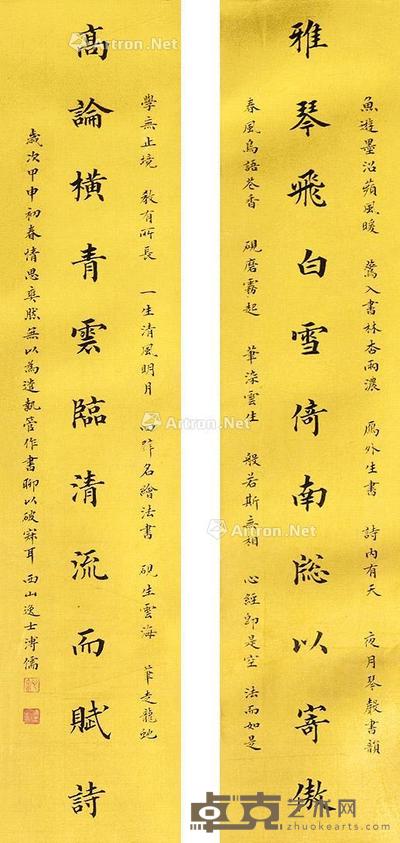 魚遊墨沼蘋風暖 鶯入書林杏雨濃 鴈外生書 詩內有天 夜月琴聲書韻
雅琴飛白雪倚南牕以寄傲
春風鳥語花香 硯磨霧起 筆染雲生 般若斯言相 心經即是空 法而如是
學無止境 教有所長 一生清風明月 四畔名繪法書 硯生雲海 筆走龍虵
高論橫青雲臨清流而賦詩
歲次甲申初春情思奐然無以為遣執管作書聊以破寂耳 西山逸士溥儒
Artron.Net
Artron.Net
Artron.Net
Artron.Net
卓克艺术网
zhuokearts.com